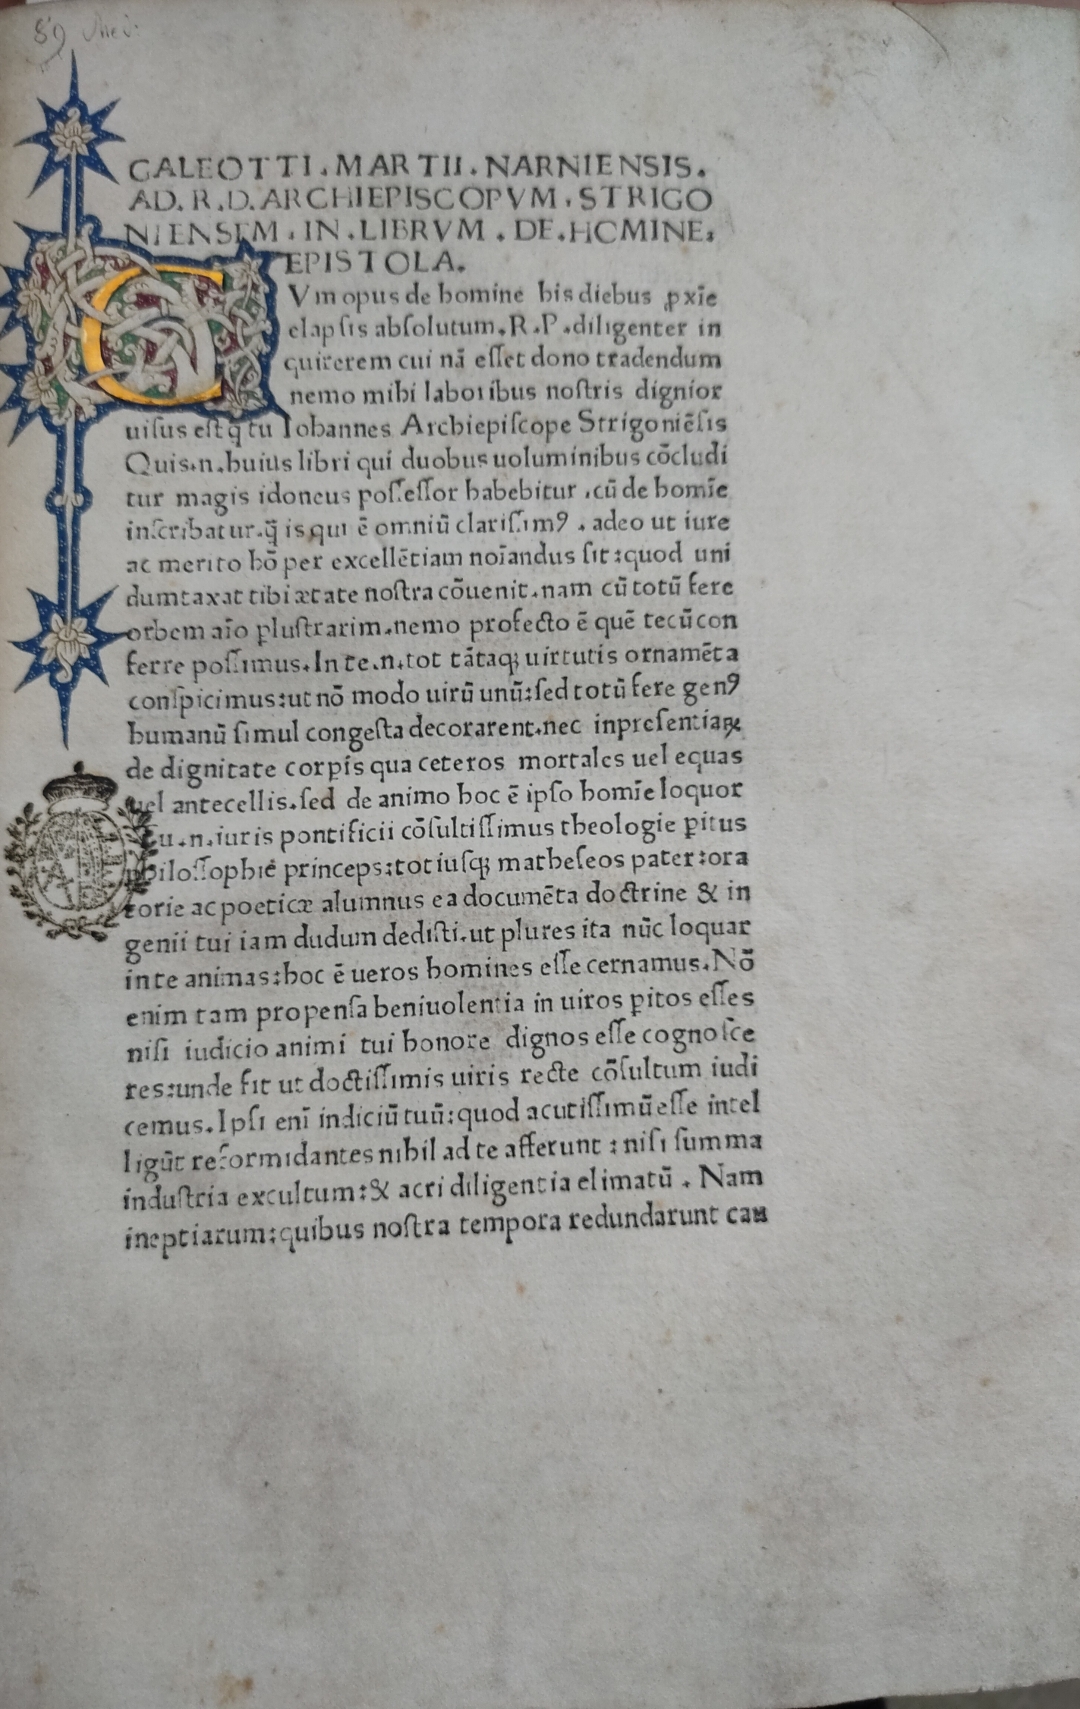 89 Med.
GALEOTTI. MARTII. NARNIENSIS.
AD. R. D. ARCHIEPISCOPVM. STRIGO
NIENSEM. IN. LIBRVM. DE. HOMINE.
EPISTOLA.
CVm opus de homine his diebus ꝓxīe
elapsis absolutum. R. P. diligenter in
quirerem cui nā esset dono tradendum
nemo mihi laboribus nostris dignior
uisus est q̄ tu Iohannes Archiepiscope Strigoniēsis
Quis. n. huius libri qui duobus uoluminibus cōcludi
tur magis idoneus possessor habebitur .cū de homīe
inscribatur. q̄ is qui ē omniū clarissimꝰ . adeo ut iure
ac merito hō per excellētiam noīandus sit: quod uni
dumtaxat tibi ætate nostra cōuenit. nam cū totū fere
orbem aīo ꝑlustrarim. nemo profecto ē quē tecū con
ferre possimus. In te. n. tot tātaqꝫ uirtutis ornamēta
conspicimus: ut nō modo uirū unū: sed totū fere genꝰ
humanū simul congesta decorarent. nec inpresentiaꝝ
de dignitate corpīs qua ceteros mortales uel equas
uel antecellis. sed de animo hoc ē ipso homīe loquor
Tu. n. iuris pontificii cōsultissimus theologie ꝑitus
philossophie princeps: totiusqꝫ matheseos pater: ora
torie ac poeticæ alumnus ea documēta doctrine & in
genii tui iam dudum dedisti. ut plures ita nūc loquar
in te animas: hoc ē ueros homines esse cernamus. Nō
enim tam propensa beniuolentia in uiros ꝑitos esses
nisi iudicio animi tui honore dignos esse cognosce
res: unde fit ut doctissimis uiris recte cōsultum iudi
cemus. Ipsi enī indiciū tuū: quod acutissimū esse intel
ligūt reformidantes nihil ad te afferunt : nisi summa
industria excultum: & acri diligentia elimatū . Nam
ineptiarum: quibus nostra tempora redundarunt cau